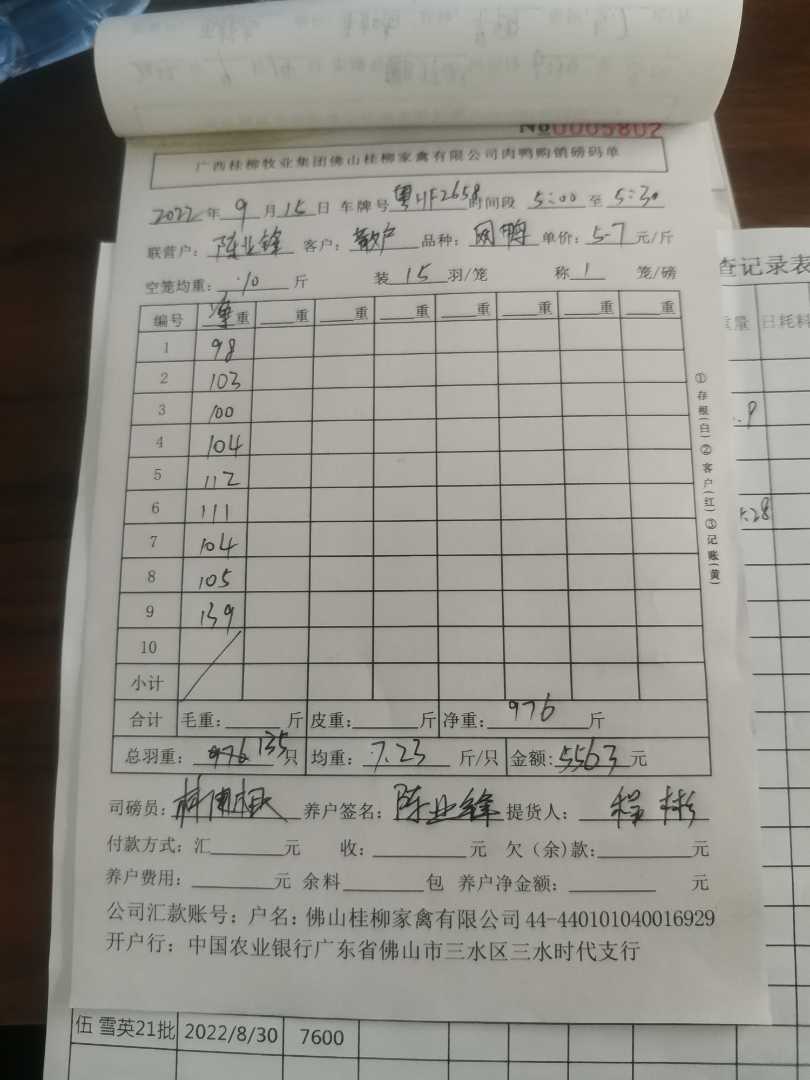 No0005802
广西桂柳牧业集团佛山桂柳家禽有限公司肉鸭购销磅码单
2022年 9 月 15 日 车牌号 粤HF2658 时间段 5:00 至 5:30
联营户: 陈业锋 客户: 散户 品种: 网鸭 单价: 5-7 元/斤
空笼均重: 10 斤 装 15 羽/笼 称 1 笼/磅
编号 净重 重 重 重 重 重 重 重
1 98
2 103
3 100
4 104
5 112
6 111
7 104
8 105
9 139
10
小计
合计 毛重: 斤 皮重: 斤 净重: 976 斤
总羽重: 976 135 只 均重: 7.23 斤/只 金额: 5563 元
司磅员: 养户签名: 陈业锋 提货人: 程彬
付款方式: 汇 元 收: 元 欠(余)款: 元
养户费用: 元 余料 包 养户净金额: 元
公司汇款账号: 户名: 佛山桂柳家禽有限公司 44-440101040016929
开户行: 中国农业银行广东省佛山市三水区三水时代支行
①存根(白)②客户(红)③记账(黄)
查记录表
重量 日耗料
伍 雪英21批 2022/8/30 7600